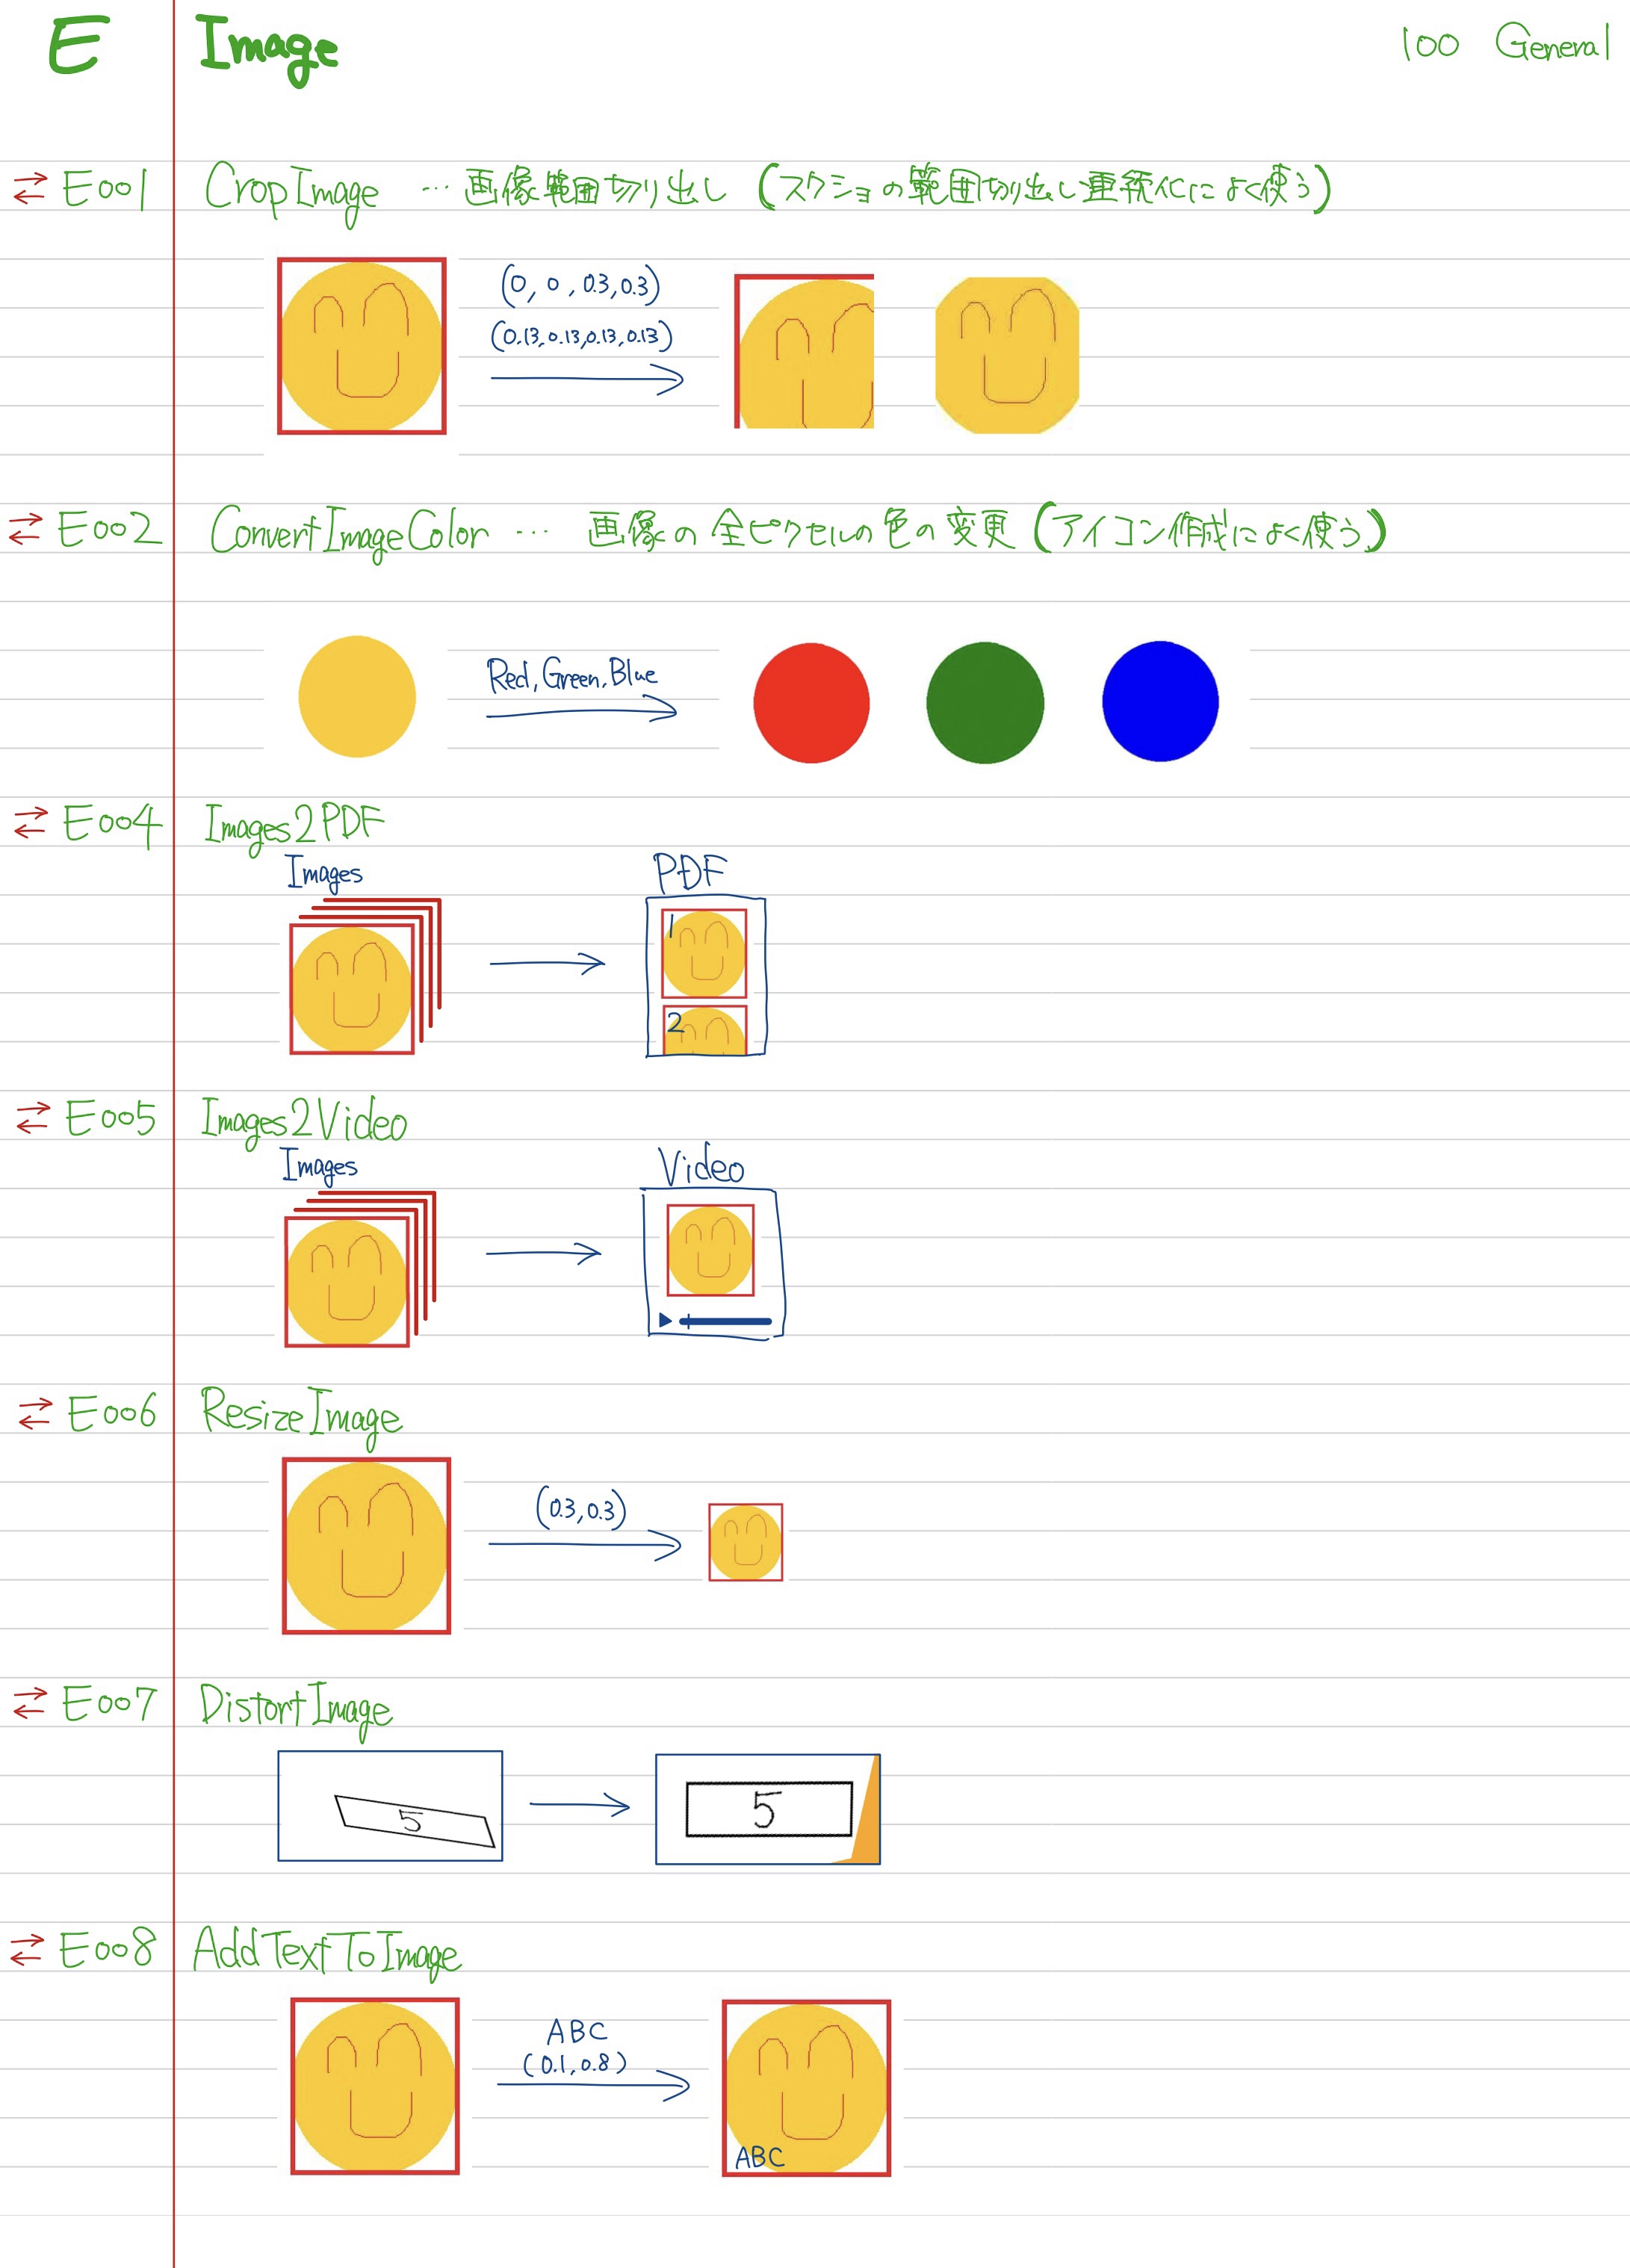 E Image 100 General
⇄ E001 CropImage … 画像範囲切り出し (スクショの範囲切り出し連続化によく使う)
(0, 0, 0.3, 0.3)
(0.13, 0.13, 0.13, 0.13)
⇄ E002 ConvertImageColor … 画像の全ピクセルの色の変更 (アイコン作成によく使う)
Red, Green, Blue
⇄ E004 Images2PDF
Images PDF
1
2
⇄ E005 Images2Video
Images Video
⇄ E006 ResizeImage
(0.3, 0.3)
⇄ E007 DistortImage
5 5
⇄ E008 AddTextToImage
ABC
(0.1, 0.8)
ABC